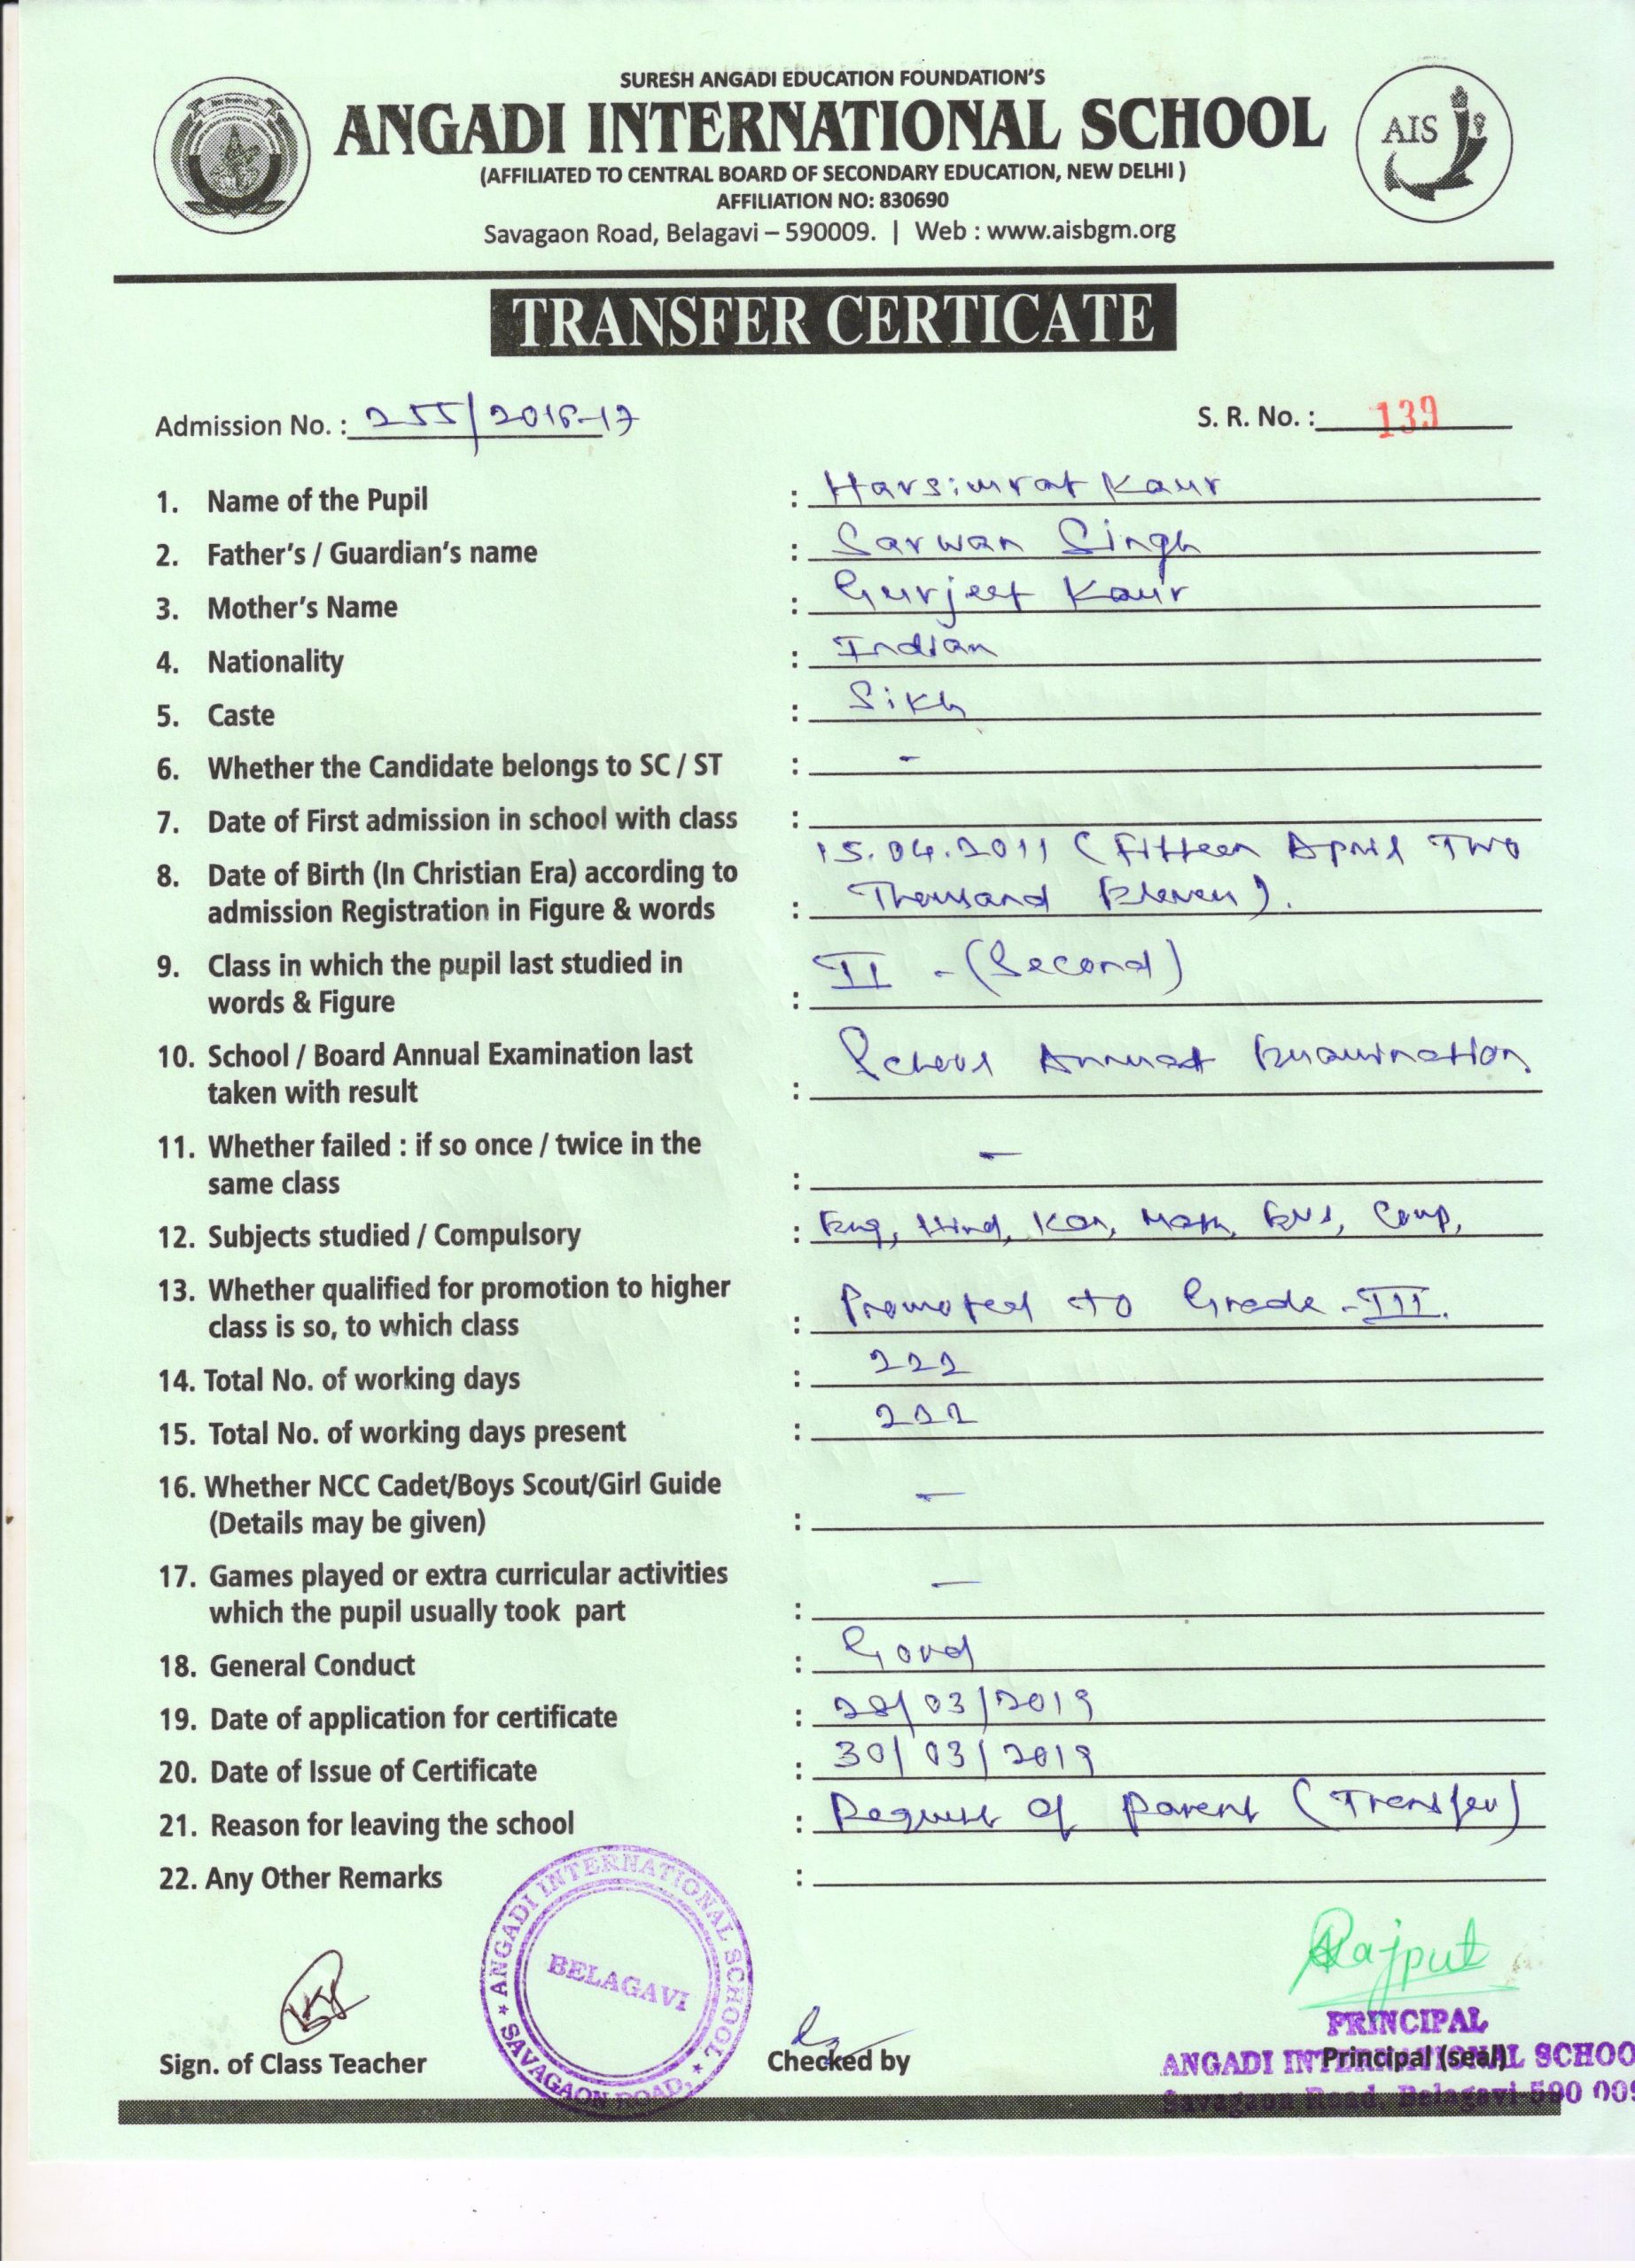 SURESH ANGADI EDUCATION FOUNDATION'S
ANGADI INTERNATIONAL SCHOOL
AIS
(AFFILIATED TO CENTRAL BOARD OF SECONDARY EDUCATION, NEW DELHI )
AFFILIATION NO: 830690
Savagaon Road, Belagavi – 590009. | Web : www.aisbgm.org
TRANSFER CERTICATE
Admission No. : 255/2016-17 S. R. No. : 139
1. Name of the Pupil : Harsimrat Kaur
2. Father's / Guardian's name : Sarwan Singh
3. Mother's Name : Gurjeet Kaur
4. Nationality : Indian
5. Caste : Sikh
6. Whether the Candidate belongs to SC / ST : -
7. Date of First admission in school with class :
8. Date of Birth (In Christian Era) according to 15.04.2011 (Fifteen April Two
admission Registration in Figure & words : Thousand Eleven).
9. Class in which the pupil last studied in II - (Second)
words & Figure :
10. School / Board Annual Examination last School Annual Examination
taken with result :
11. Whether failed : if so once / twice in the -
same class :
12. Subjects studied / Compulsory : Eng, Hind, Kan, Math, EVS, Comp,
13. Whether qualified for promotion to higher
class is so, to which class : Promoted to Grade - III.
14. Total No. of working days : 222
15. Total No. of working days present :
16. Whether NCC Cadet/Boys Scout/Girl Guide -
(Details may be given) :
17. Games played or extra curricular activities -
which the pupil usually took part :
18. General Conduct : Good
19. Date of application for certificate : 28/03/2019
20. Date of Issue of Certificate : 30/03/2019
21. Reason for leaving the school : Request of Parent (Transfer)
22. Any Other Remarks :
ANGADI INTERNATIONAL SCHOOL
BELAGAVI
★ SAVAGAON ROAD, ★
Rajput
PRINCIPAL
Sign. of Class Teacher Checked by Principal (seal)
ANGADI INTERNATIONAL SCHOO
Savagaon Road, Belagavi-590 009